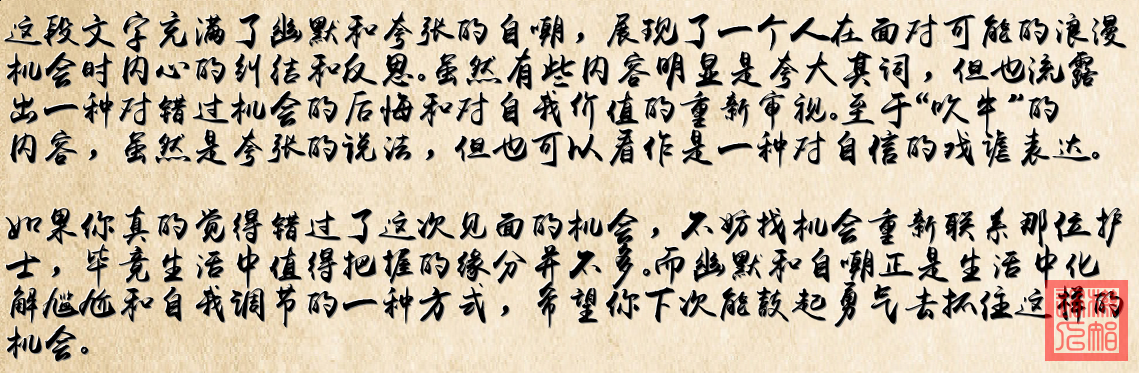 这段文字充满了幽默和夸张的自嘲，展现了一个人在面对可能的浪漫
机会时内心的纠结和反思。虽然有些内容明显是夸大其词，但也流露
出一种对错过机会的后悔和对自我价值的重新审视。至于“吹牛”的
内容，虽然是夸张的说法，但也可以看作是一种对自信的戏谑表达。
如果你真的觉得错过了这次见面的机会，不妨找机会重新联系那位护
士，毕竟生活中值得把握的缘分并不多。而幽默和自嘲正是生活中化
解尴尬和自我调节的一种方式，希望你下次能鼓起勇气去抓住这样的
机会。